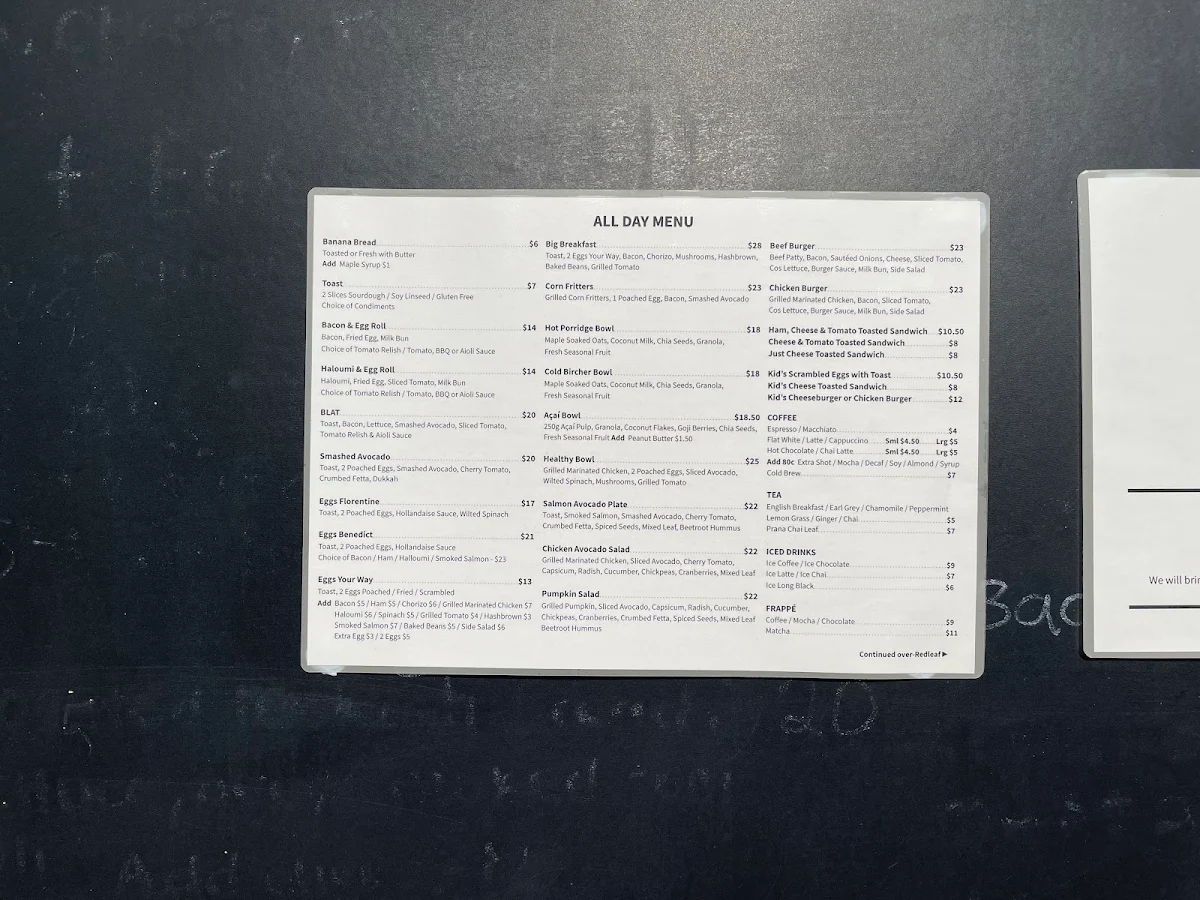 ALL DAY MENU
Banana Bread $6
Toasted or Fresh with Butter
Add Maple Syrup $1
Toast $7
2 Slices Sourdough / Soy Linseed / Gluten Free
Choice of Condiments
Bacon & Egg Roll $14
Bacon, Fried Egg, Milk Bun
Choice of Tomato Relish / Tomato, BBQ or Aioli Sauce
Haloumi & Egg Roll $14
Haloumi, Fried Egg, Sliced Tomato, Milk Bun
Choice of Tomato Relish / Tomato, BBQ or Aioli Sauce
BLAT $20
Toast, Bacon, Lettuce, Smashed Avocado, Sliced Tomato,
Tomato Relish & Aioli Sauce
Smashed Avocado $20
Toast, 2 Poached Eggs, Smashed Avocado, Cherry Tomato,
Crumbed Fetta, Dukkah
Eggs Florentine $17
Toast, 2 Poached Eggs, Hollandaise Sauce, Wilted Spinach
Eggs Benedict $21
Toast, 2 Poached Eggs, Hollandaise Sauce
Choice of Bacon / Ham / Halloumi / Smoked Salmon - $23
Eggs Your Way $13
Toast, 2 Eggs Poached / Fried / Scrambled
Add Bacon $5 / Ham $5 / Chorizo $6 / Grilled Marinated Chicken $7
Haloumi $6 / Spinach $5 / Grilled Tomato $4 / Hashbrown $3
Smoked Salmon $7 / Baked Beans $5 / Side Salad $6
Extra Egg $3 / 2 Eggs $5
Big Breakfast $28
Toast, 2 Eggs Your Way, Bacon, Chorizo, Mushrooms, Hashbrown,
Baked Beans, Grilled Tomato
Corn Fritters $23
Grilled Corn Fritters, 1 Poached Egg, Bacon, Smashed Avocado
Hot Porridge Bowl $18
Maple Soaked Oats, Coconut Milk, Chia Seeds, Granola,
Fresh Seasonal Fruit
Cold Bircher Bowl $18
Maple Soaked Oats, Coconut Milk, Chia Seeds, Granola,
Fresh Seasonal Fruit
Açaí Bowl $18.50
250g Açaí Pulp, Granola, Coconut Flakes, Goji Berries, Chia Seeds,
Fresh Seasonal Fruit Add Peanut Butter $1.50
Healthy Bowl $25
Grilled Marinated Chicken, 2 Poached Eggs, Sliced Avocado,
Wilted Spinach, Mushrooms, Grilled Tomato
Salmon Avocado Plate $22
Toast, Smoked Salmon, Smashed Avocado, Cherry Tomato,
Crumbed Fetta, Spiced Seeds, Mixed Leaf, Beetroot Hummus
Chicken Avocado Salad $22
Grilled Marinated Chicken, Sliced Avocado, Cherry Tomato,
Capsicum, Radish, Cucumber, Chickpeas, Cranberries, Mixed Leaf
Pumpkin Salad $22
Grilled Pumpkin, Sliced Avocado, Capsicum, Radish, Cucumber,
Chickpeas, Cranberries, Crumbed Fetta, Spiced Seeds, Mixed Leaf
Beetroot Hummus
Beef Burger $23
Beef Patty, Bacon, Sautéed Onions, Cheese, Sliced Tomato,
Cos Lettuce, Burger Sauce, Milk Bun, Side Salad
Chicken Burger $23
Grilled Marinated Chicken, Bacon, Sliced Tomato,
Cos Lettuce, Burger Sauce, Milk Bun, Side Salad
Ham, Cheese & Tomato Toasted Sandwich $10.50
Cheese & Tomato Toasted Sandwich $8
Just Cheese Toasted Sandwich $8
Kid's Scrambled Eggs with Toast $10.50
Kid's Cheese Toasted Sandwich $8
Kid's Cheeseburger or Chicken Burger $12
COFFEE
Espresso / Macchiato $4
Flat White / Latte / Cappuccino Sml $4.50 Lrg $5
Hot Chocolate / Chai Latte Sml $4.50 Lrg $5
Add 80c Extra Shot / Mocha / Decaf / Soy / Almond / Syrup
Cold Brew $7
TEA
English Breakfast / Earl Grey / Chamomile / Peppermint
Lemon Grass / Ginger / Chai $5
Prana Chai Leaf $7
ICED DRINKS
Ice Coffee / Ice Chocolate $9
Ice Latte / Ice Chai $7
Ice Long Black $6
FRAPPÉ
Coffee / Mocha / Chocolate $9
Matcha $11
Continued over-Redleaf ▶
We will brin
Bac
20
Add